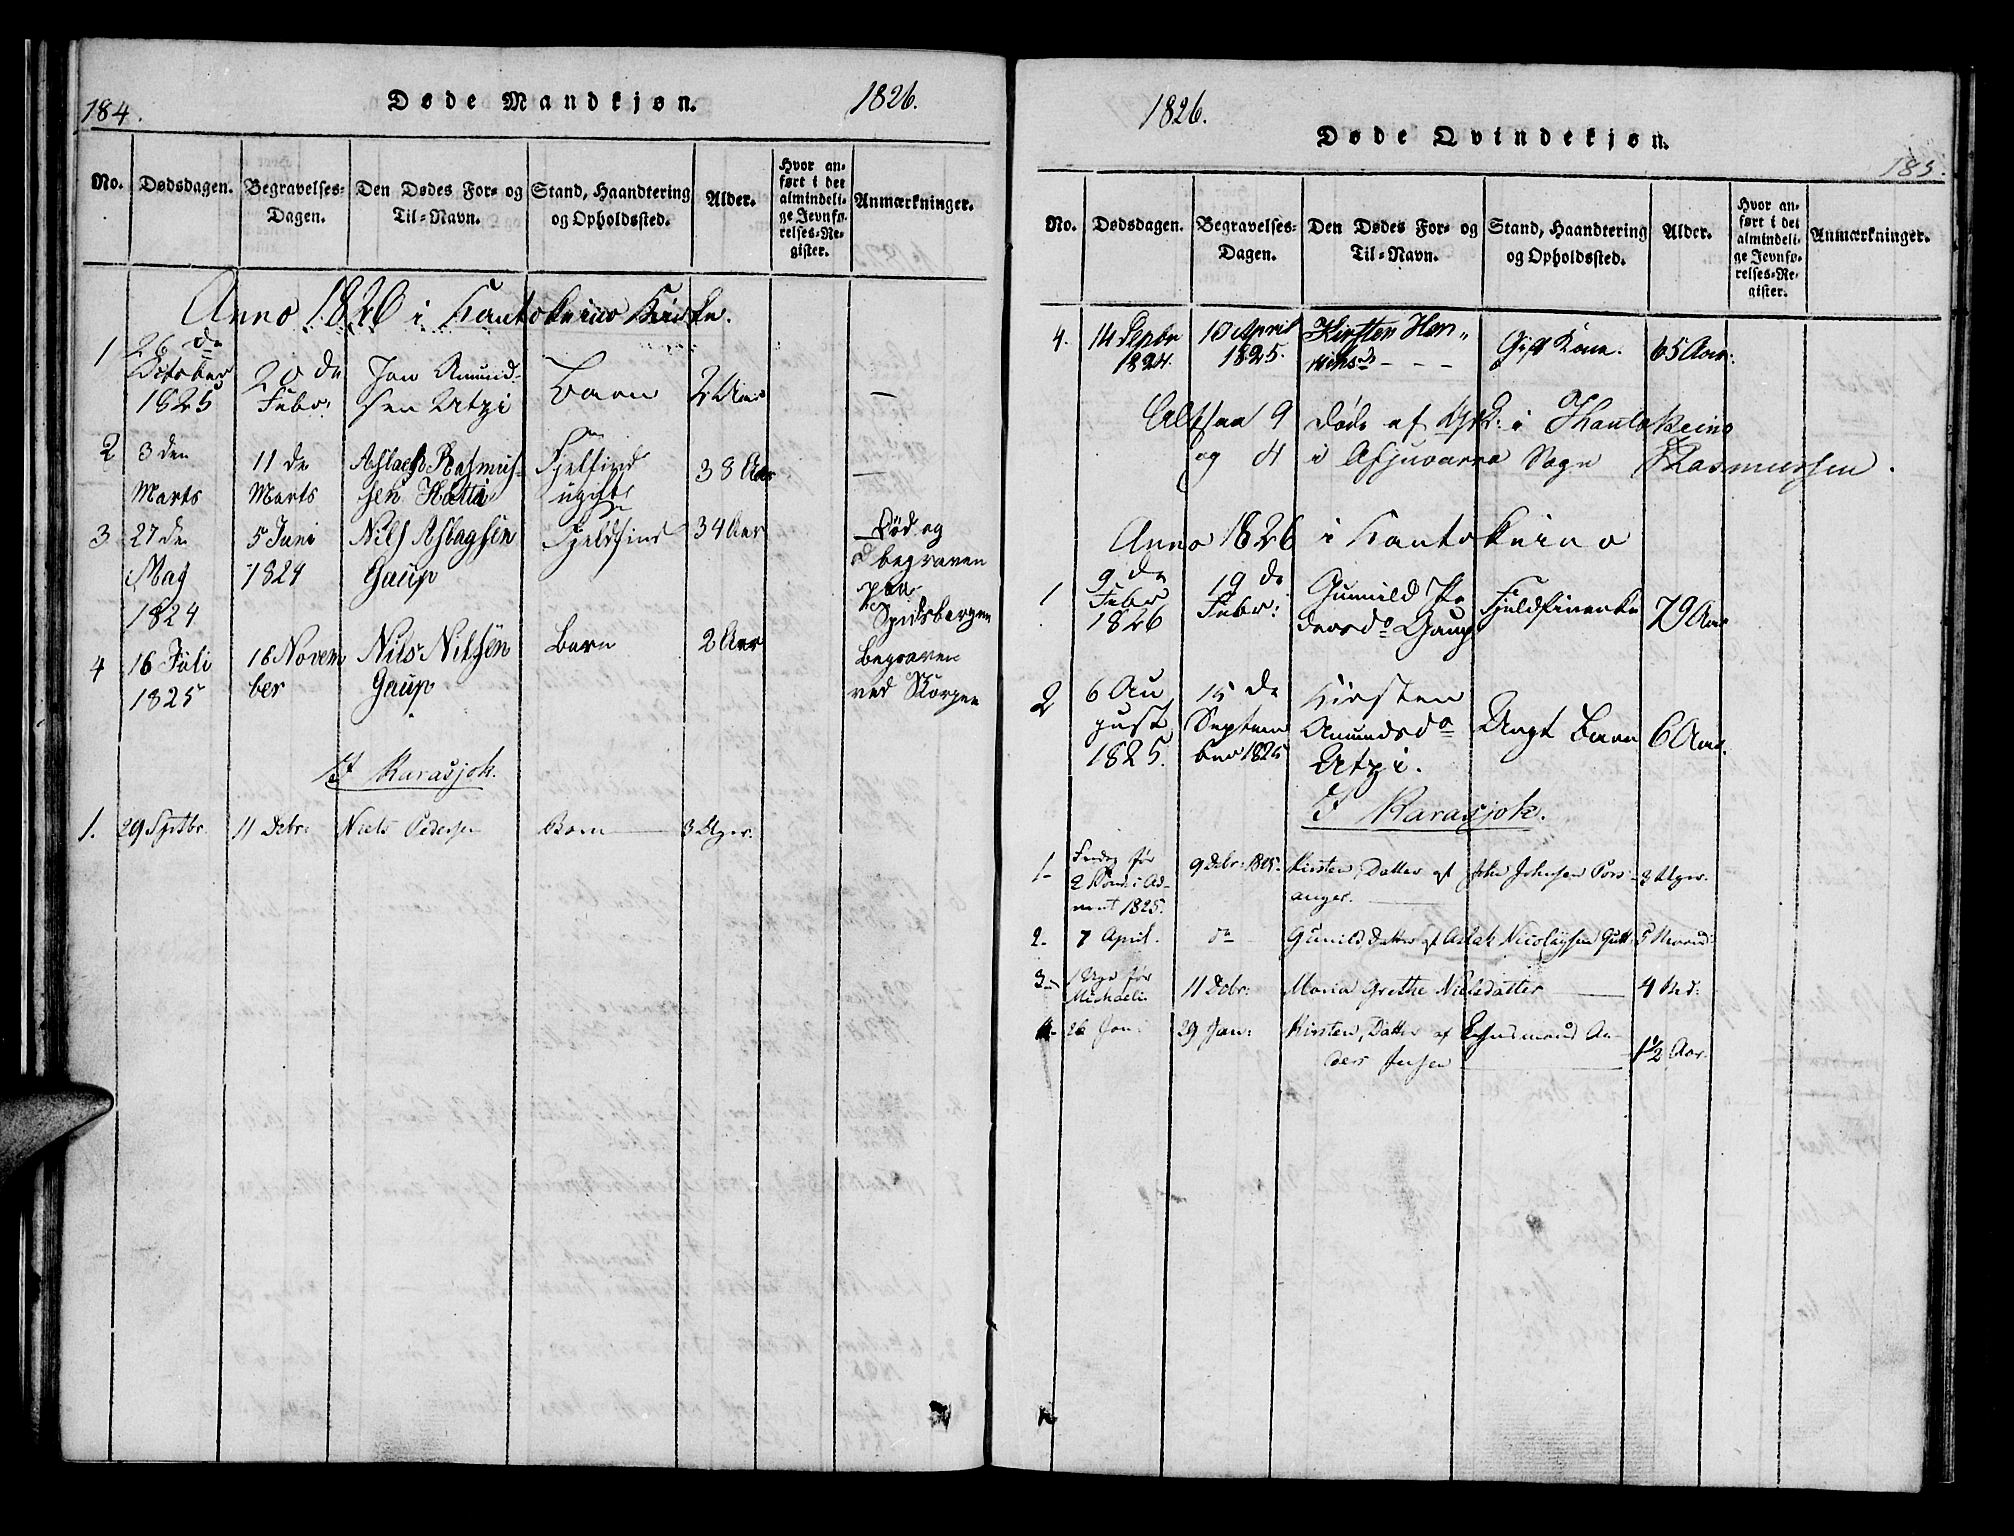 184.
Døde Mandkjøn.
1826.
No.
Dødsdagen.
Begravelses-
Dagen.
Den Dødes For- og
Til-Navn.
Stand, Haandtering
og Opholdssted.
Alder.
Hvor an-
ført i det
almindeli-
ge Jevnfø-
relses-Re-
gister.
Anmærkninger.
Anno 1826 i Kautokeino Kirke.
1
26 de
October
1825
20 de
Febr:
Jon Amund-
sen Utzi
Barn
2 Aar
—
2
3 den
Marts
11 de
Marts
Aslach Rasmus-
sen Hætta
Fjelfind
ugift
38 Aar
—
3
27 de
May
1824
5 Juni
1824
Nils Aslagsen
Gaup
Fjeldfind
34 Aar
Død og
begraven
paa
Spidsbergen
4
16 Juli
1825
16 Novem
ber
Nils Nilsen
Gaup
Barn
2 Aar
begraven
ved
I Karasjok.
1.
29 Septbr.
11 Debr:
Niels Pedersen
Barn
3 Uger.
1826.
Døde Qvindekjøn.
185.
No.
Dødsdagen.
Begravelses-
Dagen.
Den Dødes For- og
Til-Navn.
Stand, Haandtering
og Opholdssted.
Alder.
Hvor an-
ført i det
almindeli-
ge Jevnfø-
relses-Re-
gister.
Anmærkninger.
4.
14 Sepbr
1824.
10 April
1825.
Kirsten Hen„
Gift Kone.
65 Aar.
Altsaa 9 døde af i Kautokeino
og 4 i Afjuvarra Sogn Rasmussen.
Anno 1826 i Kautokeino
1
9 de
Febr
1826
19 de
Febr:
Gunnild Pe
dersdr Gaup
Fjeldfinerke
79 Aar
2
6 Au
gust
1825.
15 de
Septem
ber 1825
Kirsten
Amundsdr
Utzi.
Ungt Barn
6 Aar.
I Karasjok.
1-
Fredag før
2 Sønd: i Ad-
vent 1825.
9 Debr: 1825.
Kirsten, Datter af John Johnsen Pors-
anger.
3 Uger.
2-
7 April.
do
Gunild Datter af Aslak Nicolaysen Gutt
3-
1 Uge før
Michaeli
11 Debr:
Maria Grethe Nielsdatter
4 Md:
4-
26 Jan:
29 Jan:
Kirsten, Datter af An-
ders Jensen
1½ Aar.